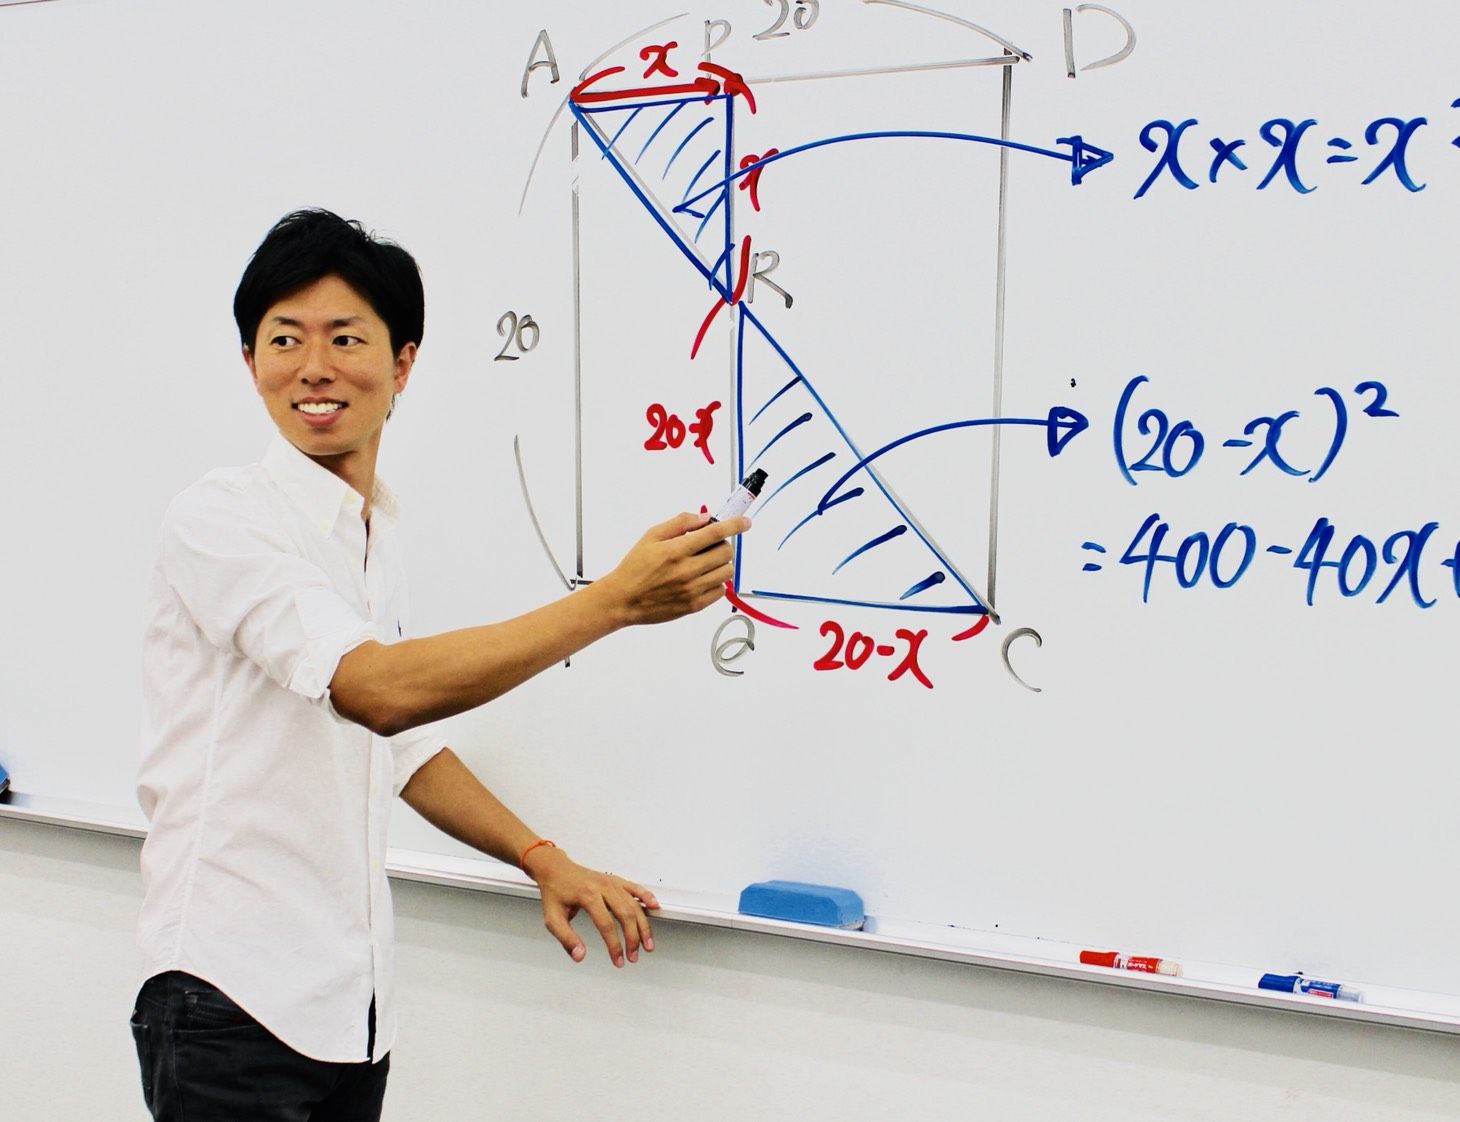 A
P
20
D
x
x × x = x²
x
R
20
20-x
(20-x)²
= 400-40x+
Q
20-x
C